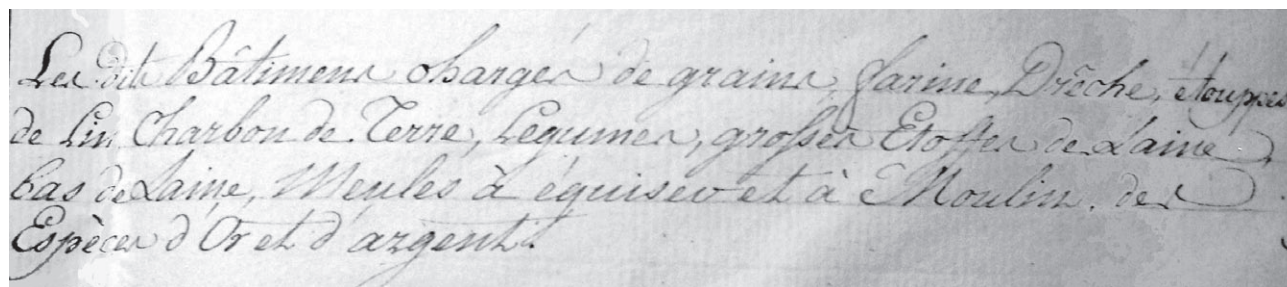 Les dits Bâtimens chargés de grains, farine, Drêche, étouppes
de Lin Charbon de Terre, Légumes, grosses Etoffes de Laine,
bas de Laine, Meules à équiser et à Moulin, des
Espèces d'Or et d'argent.